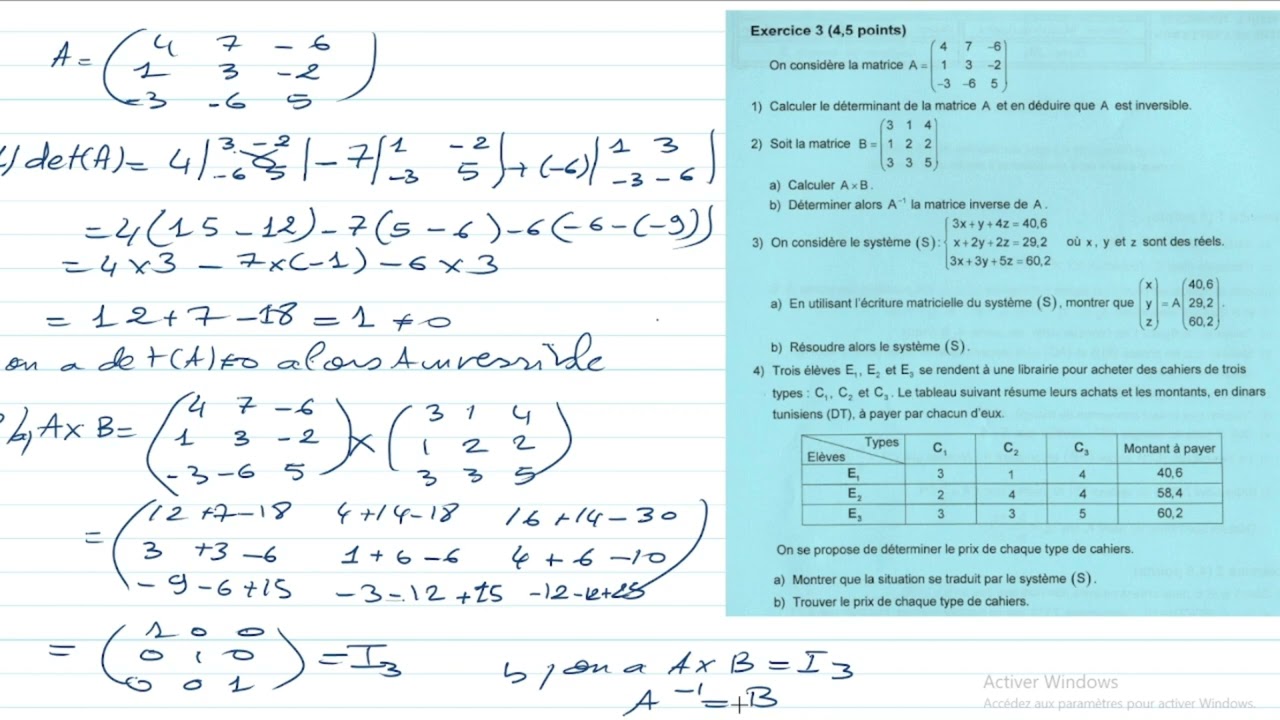 A = ( 4 7 -6
1 3 -2
-3 -6 5 )
1/ det(A) = 4 | 3 -2 -6 5 | - 7 | 1 -2 -3 5 | + (-6) | 1 3 -3 -6 |
= 4(15-12) - 7(5-6) - 6(-6-(-9))
= 4×3 - 7×(-1) - 6×3
= 12+7-18 = 1 ≠0
on a det(A)≠0 alors A inversible
2/a, A×B= ( 4 7 -6 1 3 -2 -3 -6 5 ) × ( 3 1 4 1 2 2 3 3 5 )
= ( 12+7-18 4+14-18 16+14-30
3 +3-6 1+6-6 4+6-10
-9-6+15 -3-12+15 -12-12+25 )
= ( 1 0 0
0 1 0
0 0 1 ) = I3
b, on a A×B = I3
A^-1 = B
Exercice 3 (4,5 points)
On considère la matrice A = ( 4 7 -6 1 3 -2 -3 -6 5 )
1) Calculer le déterminant de la matrice A et en déduire que A est inversible.
2) Soit la matrice B = ( 3 1 4 1 2 2 3 3 5 )
a) Calculer A×B.
b) Déterminer alors A^-1 la matrice inverse de A.
3) On considère le système (S): { 3x+y+4z=40,6 x+2y+2z=29,2 3x+3y+5z=60,2 où x, y et z sont des réels.
a) En utilisant l'écriture matricielle du système (S), montrer que ( x y z ) = A ( 40,6 29,2 60,2 ).
b) Résoudre alors le système (S).
4) Trois élèves E1, E2 et E3 se rendent à une librairie pour acheter des cahiers de trois
types : C1, C2 et C3. Le tableau suivant résume leurs achats et les montants, en dinars
tunisiens (DT), à payer par chacun d'eux.
Types Elèves C1 C2 C3 Montant à payer
E1 3 1 4 40,6
E2 2 4 4 58,4
E3 3 3 5 60,2
On se propose de déterminer le prix de chaque type de cahiers.
a) Montrer que la situation se traduit par le système (S).
b) Trouver le prix de chaque type de cahiers.
Activer Windows
Accédez aux paramètres pour activer Windows.